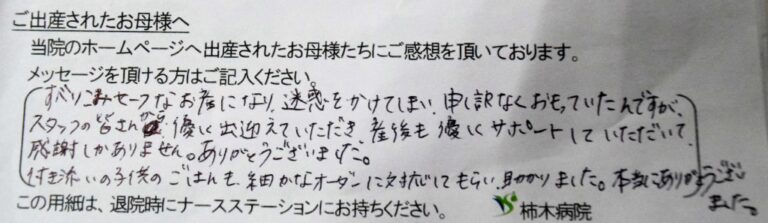 ご出産されたお母様へ
当院のホームページへ出産されたお母様たちにご感想を頂いております。
メッセージを頂ける方はご記入ください。
すべりこみセーフなお産になり、迷惑をかけてしまい、申し訳なくおもっていたんですが、
スタッフの皆さんが優しく出迎えていただき、産後も優しくサポートしていただいて、
感謝しかありません。ありがとうございました。
付き添いの子供のごはんも、細かなオーダーに対応してもらい、助かりました。本当にありがとうございました。
この用紙は、退院時にナースステーションにお持ちください。 柿木病院